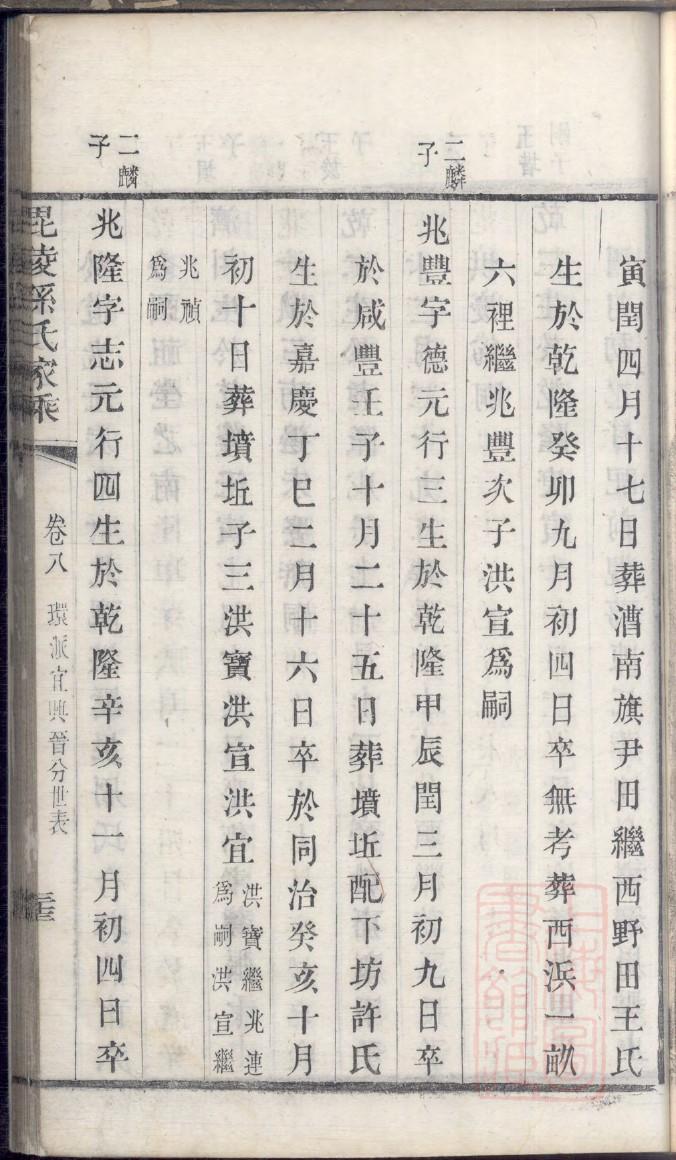 寅閏四月十七日葬漕南旗尹田繼西野田王氏
生於乾隆癸卯九月初四日卒無考葬西浜田一畝
六裡繼兆豐次子洪宣爲嗣
二麟子
兆豐字德元行三生於乾隆甲辰閏三月初九日卒
於咸豐壬子十月二十五日葬墳坵配下坊許氏
生於嘉慶丁巳二月十六日卒於同治癸亥十月
初十日葬墳坵子三洪寶洪宣洪宜
洪寶繼兆連
爲嗣洪宣繼
兆禎
爲嗣
二麟子
兆隆字志元行四生於乾隆辛亥十一月初四日卒
毘陵孫氏家乘
卷八
環派宜興晉分世表